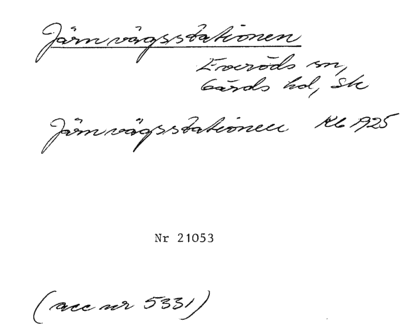 Järnvägsstationen
Everöds sn,
Gärds hd, Sk
Järnvägsstationen Kb 1925
Nr 21053
(acc nr 5331)